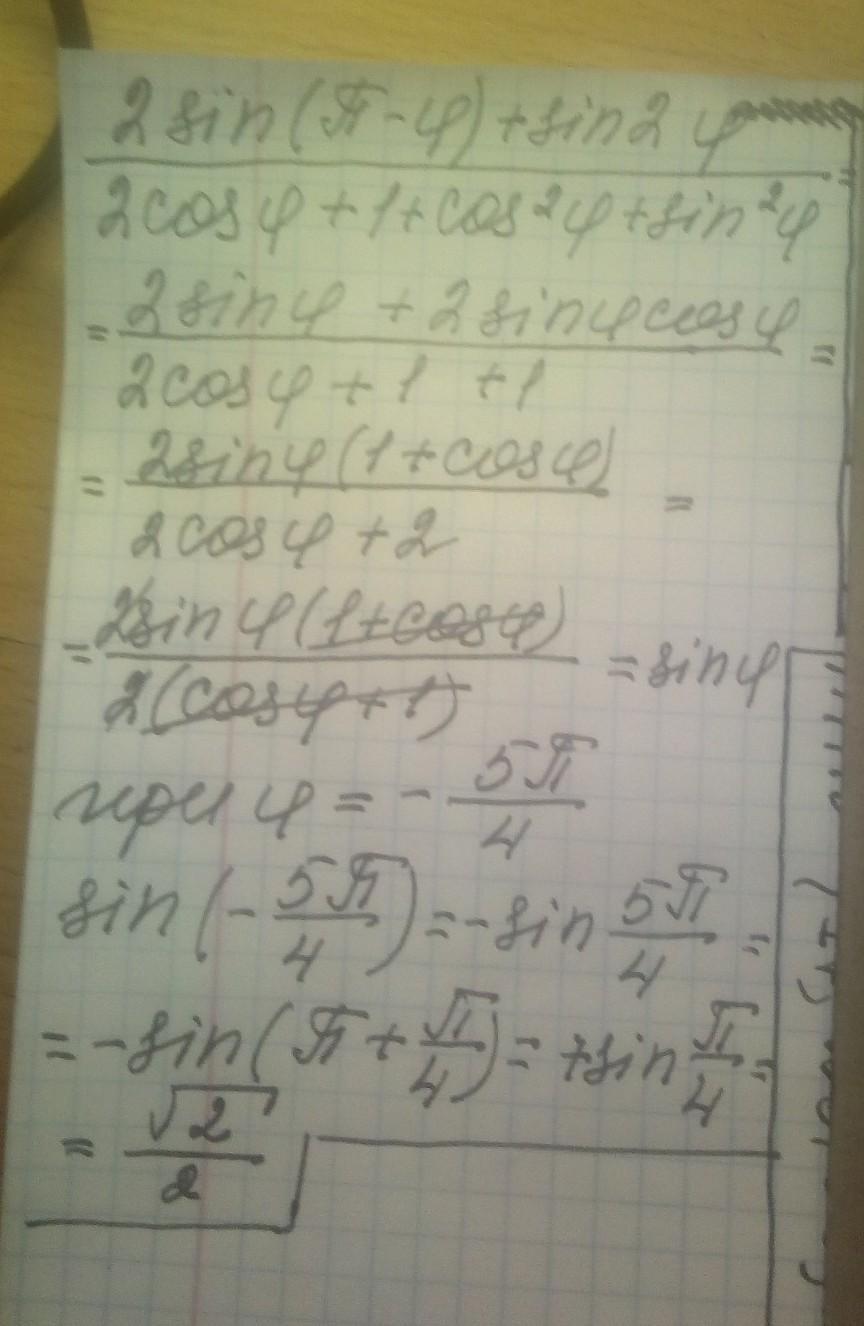 2 sin(π-φ)+sin2φ
2cosφ+1+cos²φ+sin²φ =
= 2sinφ + 2sinφcosφ =
2cosφ+1 +1
= 2sinφ(1+cosφ) =
2cosφ+2
= 2sinφ(1+cosφ) = sinφ
2(cosφ+1)
при φ = - 5π/4
sin(-5π/4) = -sin 5π/4 =
= -sin(π+π/4) = +sin π/4 =
= √2/2